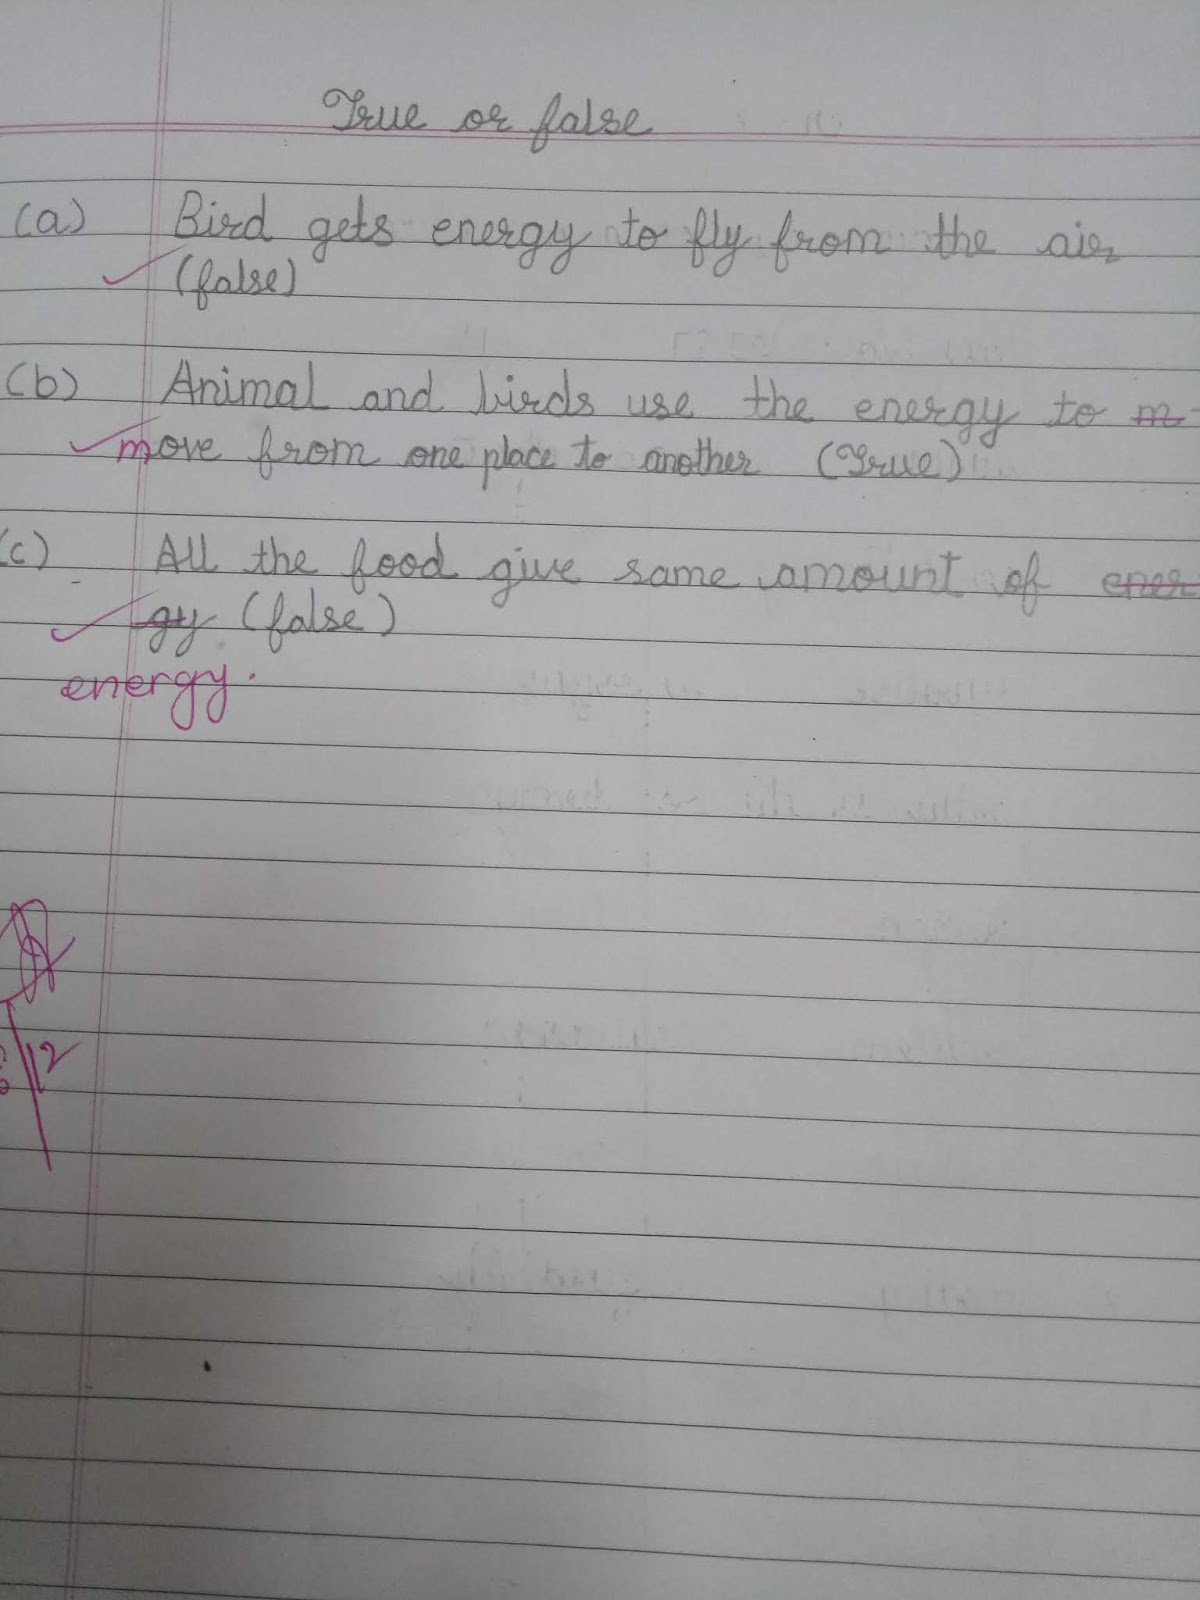 True or false
(a) Bird gets energy to fly from the air
(false)
(b) Animal and birds use the energy to m
move from one place to another (True)
(c) All the food give same amount of ener
gy (false)
energy.
12